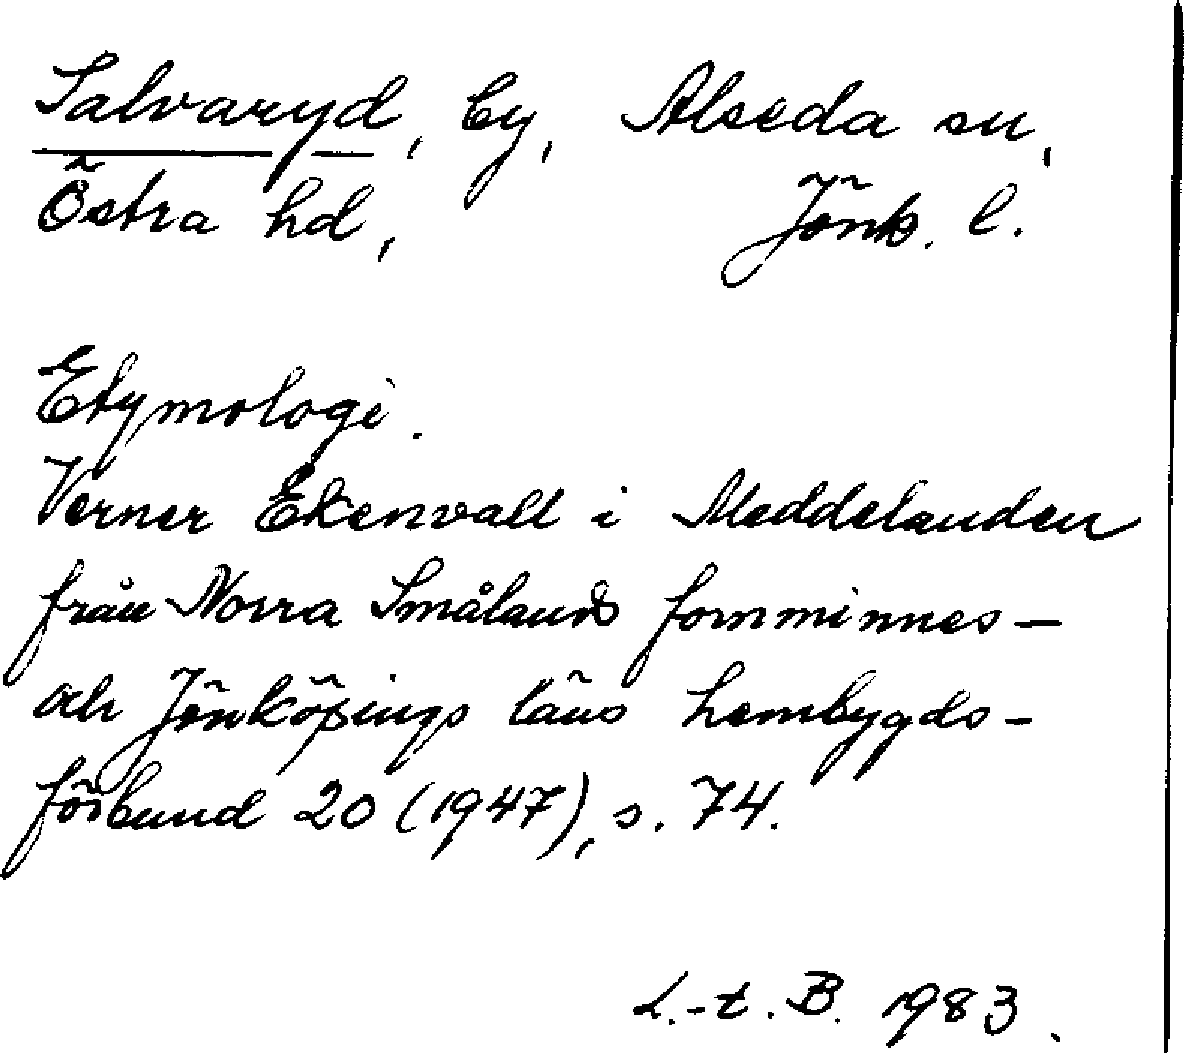 Salvaryd, by, Alseda sn,
Östra hd, Jönk. l.
Etymologi.
Verner Ekenvall i Meddelanden
från Norra Smålands fornminnes-
och Jönköpings läns hembygds-
förbund 20 (1947), s. 74.
L.-t. B. 1983.